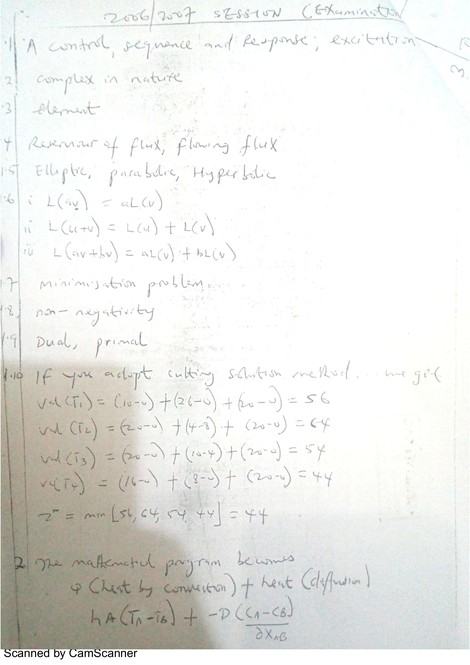 2006/2007 SESSION (Examination
1.1 A control, sequence and Response; excitation
2 complex in nature
1.3 element
4 Reservour of flux, flowing flux
1.5 Elliptic, parabolic, Hyperbolic
1.6 i L(av) = aL(v)
ii L(u+v) = L(u) + L(v)
iii L(av+bv) = aL(v) + bL(v)
1.7 minimisation problem
1.8 non-negativity
1.9 Dual, primal
1.10 If you adopt cutting solution method... we get
val(T1) = (10-0) + (26-0) + (20-0) = 56
val(T2) = (20-0) + (4-8) + (20-0) = 64
val(T3) = (20-0) + (10-4) + (20-0) = 54
val(T4) = (16-0) + (8-0) + (20-0) = 44
= min [56, 64, 54, 44] = 44
2 The mathematical program becomes
(heat by convection) + heat (diffusion)
hA(TA-TB) + -D (CA-CB)
∂XAB
Scanned by CamScanner